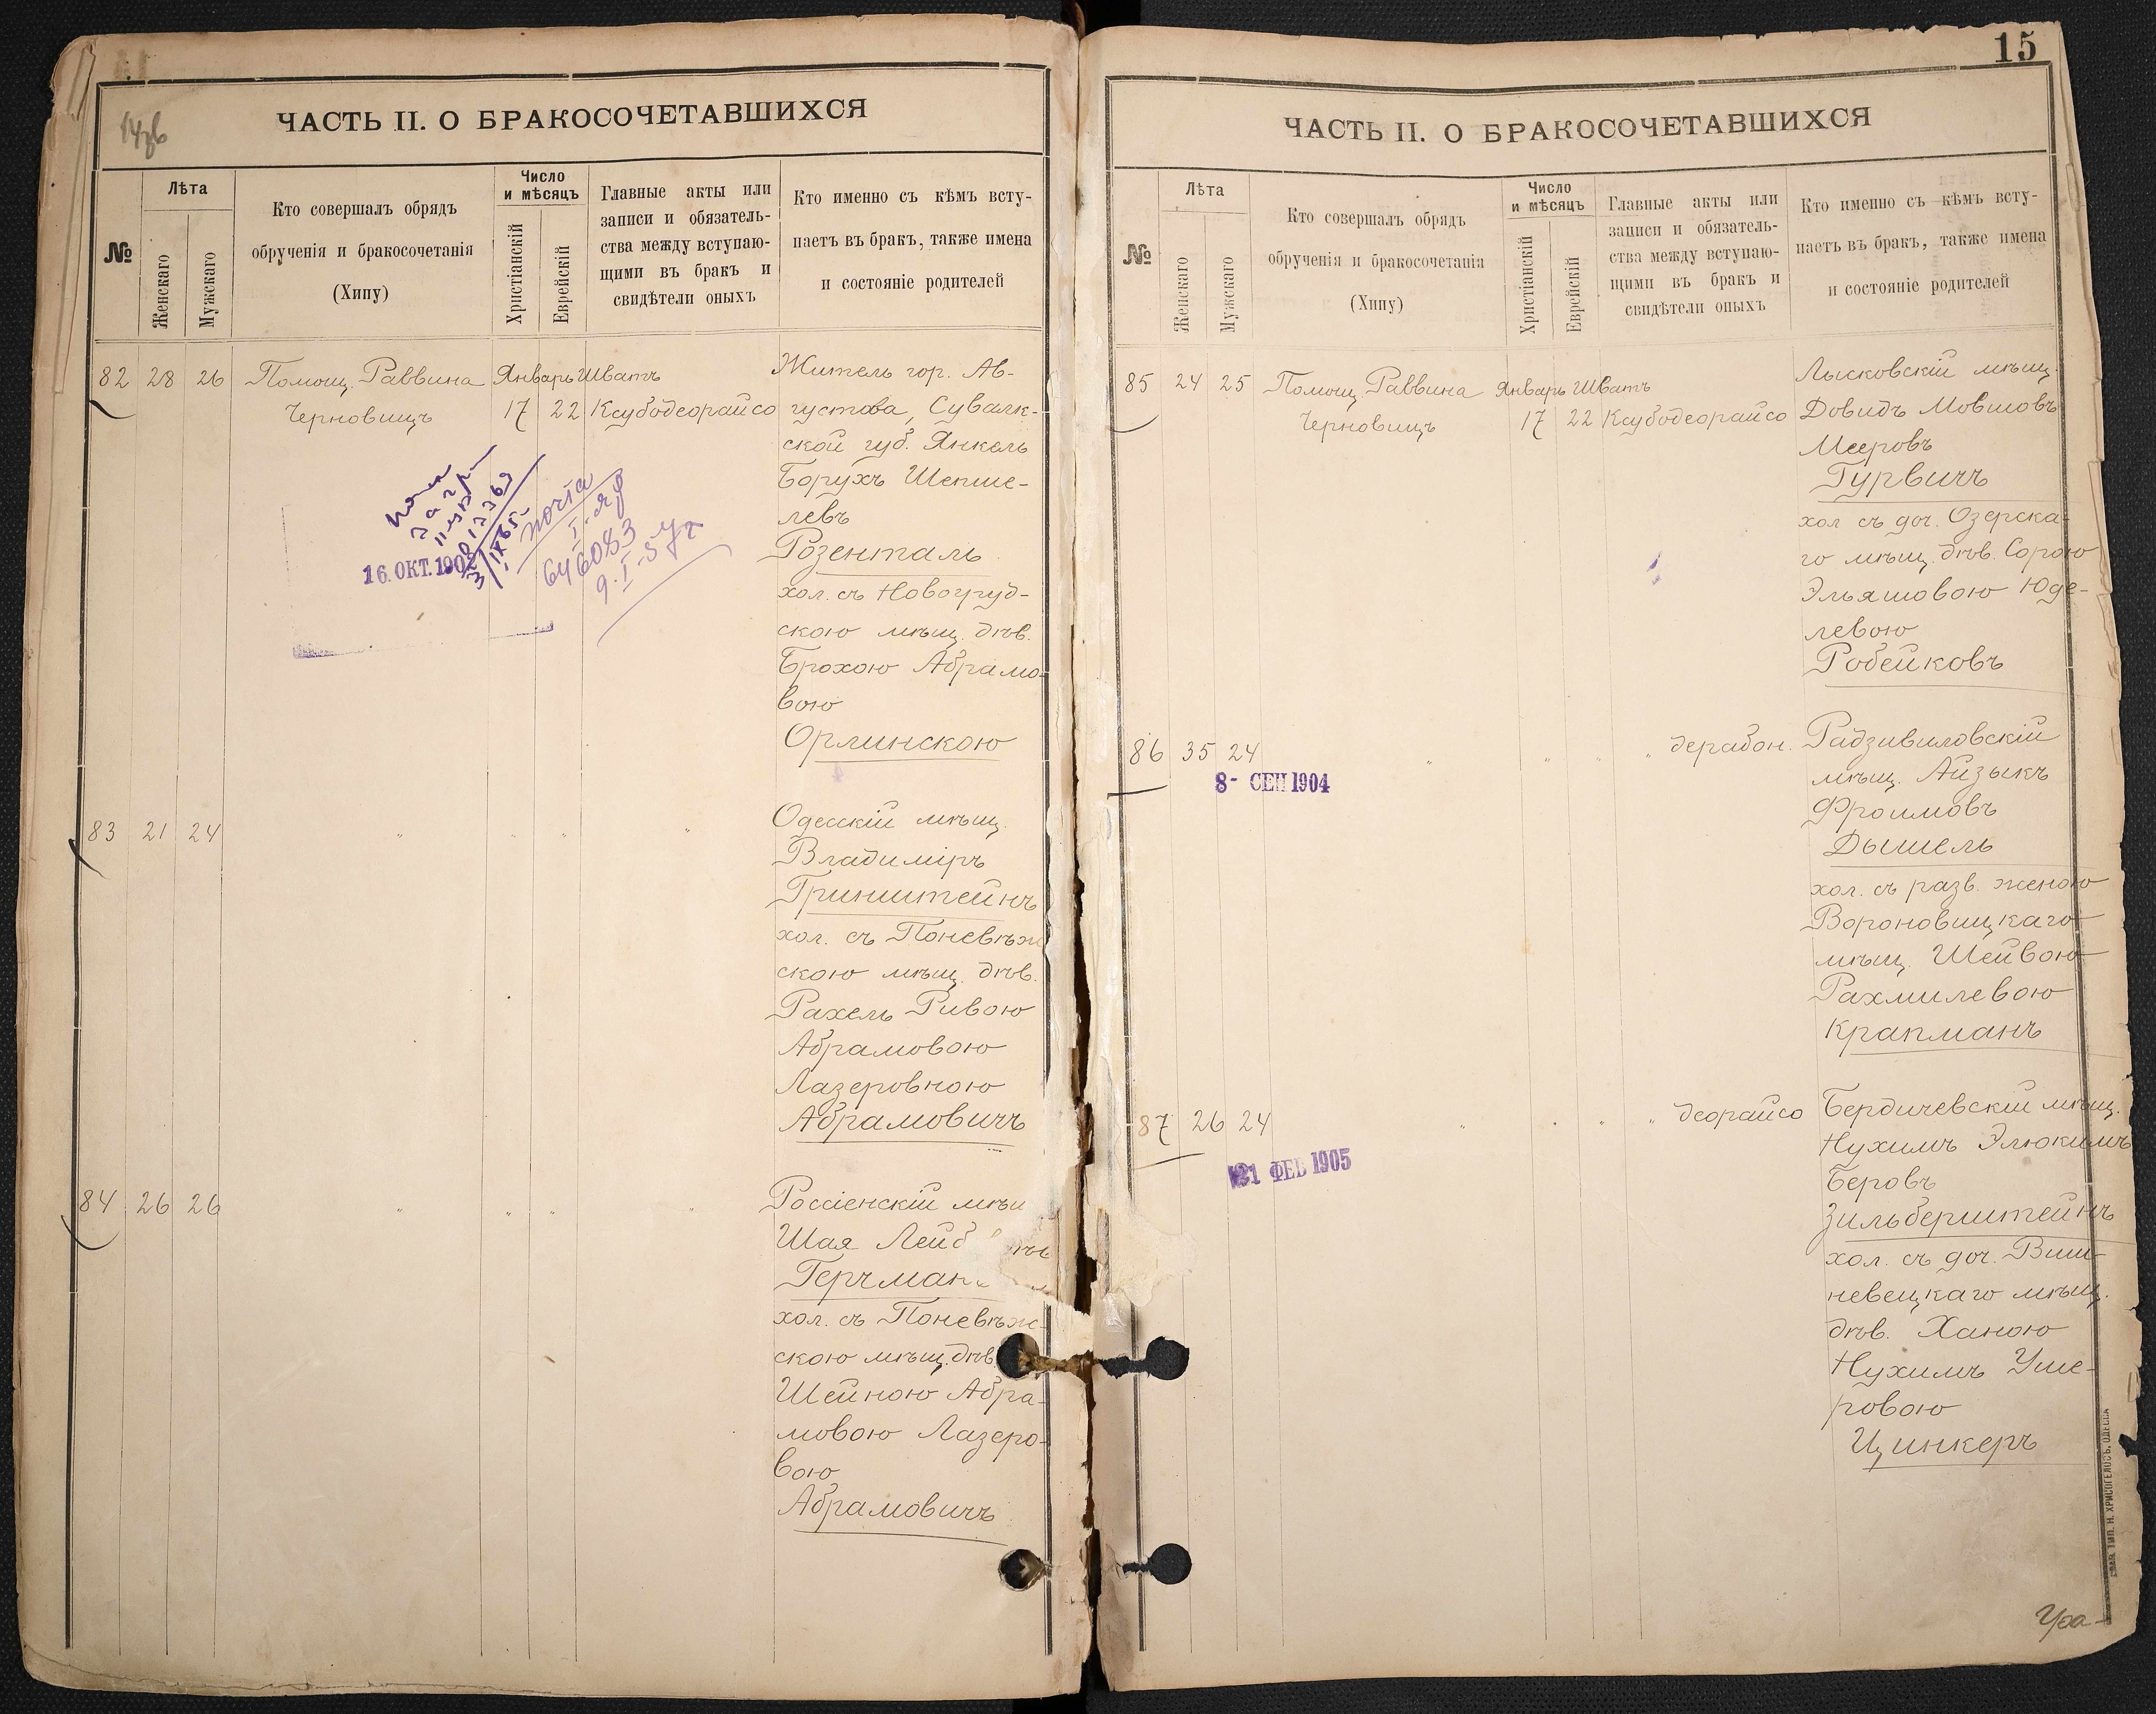 ЧАСТЬ II. О БРАКОСОЧЕТАВШИХСЯ
№
Лѣта
Женскаго
Мужскаго
Кто совершалъ обрядъ
обрученія и бракосочетанія
(Хипу)
Число
и мѣсяцъ
Христіанскій
Еврейскій
Главные акты или
записи и обязатель-
ства между вступаю-
щими въ бракъ и
свидѣтели оныхъ
Кто именно съ кѣмъ всту-
паетъ въ бракъ, также имена
и состояніе родителей
82 28 26 Помощ. Раввина Январь Шватъ Житель гор. Ав-
Черновицъ 17 22 Ксубодеорайсо густова, Сувалк-
ской губ. Янкель
Борухъ Шепше-
левъ
Розенталь
хол. съ Новогруд-
скою мѣщ. дѣв.
Брохою Абрамо-
вою
Орлинскою
16. ОКТ. 1902
почта
646083
83 21 24 " " " " Одесскій мѣщ.
Владиміръ
Гринштейнъ
хол. съ Поневѣж
скою мѣщ. дѣв.
Рахель Ривою
Абрамовою
Лазеровною
Абрамовичъ
84 26 26 " " " " Россіенскій мѣщ
Шая Лейб
Герчман
хол. съ Поневѣж-
скою мѣщ. дѣв.
Шейною Абра-
мовою Лазеро-
вою
Абрамовичъ
15
ЧАСТЬ II. О БРАКОСОЧЕТАВШИХСЯ
№
Лѣта
Женскаго
Мужскаго
Кто совершалъ обрядъ
обрученія и бракосочетанія
(Хипу)
Число
и мѣсяцъ
Христіанскій
Еврейскій
Главные акты или
записи и обязатель-
ства между вступаю-
щими въ бракъ и
свидѣтели оныхъ
Кто именно съ кѣмъ всту-
паетъ въ бракъ, также имена
и состояніе родителей
85 24 25 Помощ. Раввина Январь Шватъ Лысковскій мѣщ.
Черновицъ 17 22 Ксубодеорайсо Довидъ Мовшовъ
Мееровъ
Гурвичъ
хол съ доч. Озерска-
го мѣщ. дѣв. Сорою
Эльяшовою Юде-
левою
Робейковъ
86 35 24 " " " " дерабон. Радзивиловскій
8- СЕН 1904
мѣщ. Айзыкъ
Фроимовъ
Дышель
хол. съ разв. женою
Вороновицкаго
мѣщ. Шейвою
Рахмилевою
Крапманъ
87 26 24 " " " " деорайсо Бердичевскій мѣщ.
21 ФЕВ 1905
Нухимъ Элюкимъ
Беровъ
Зильберштейнъ
хол. съ доч. Виш-
невецкаго мѣщ.
дѣв. Ханою
Нухимъ Уше-
ровою
Цинкеръ
ТИП. Н. ХРИСОГЕЛОСЪ, ОДЕССА